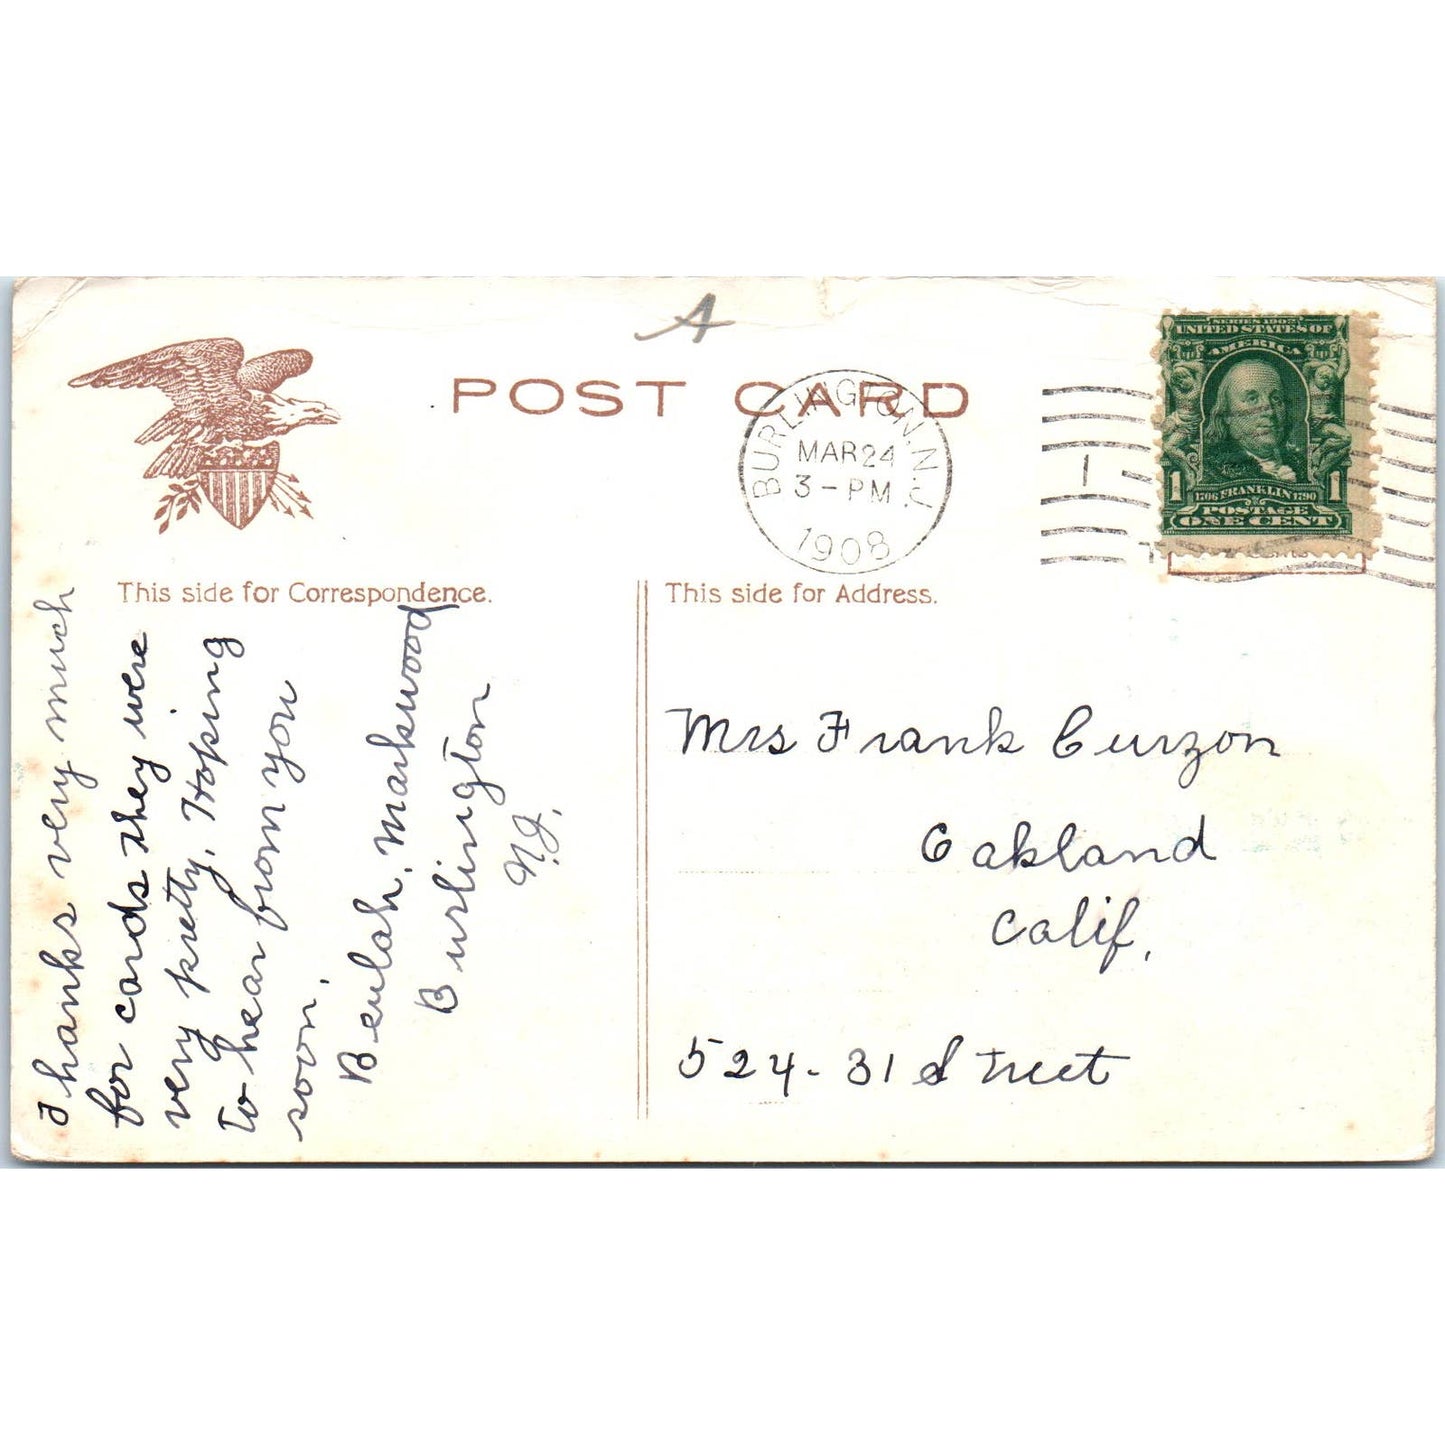 A
POST CARD
BURLINGTON, N.J.
MAR 24
3-PM
1908
1
SERIES 1902
UNITED STATES OF
AMERICA
1 1
1706 FRANKLIN 1790
POSTAGE
ONE CENT
This side for Correspondence.
Thanks very much
for cards they were
very pretty. Hoping
to hear from you
soon.
Beulah. Markwood
Burlington
N.J.
This side for Address.
Mrs Frank Curzon
Oakland
Calif,
524-31 Street